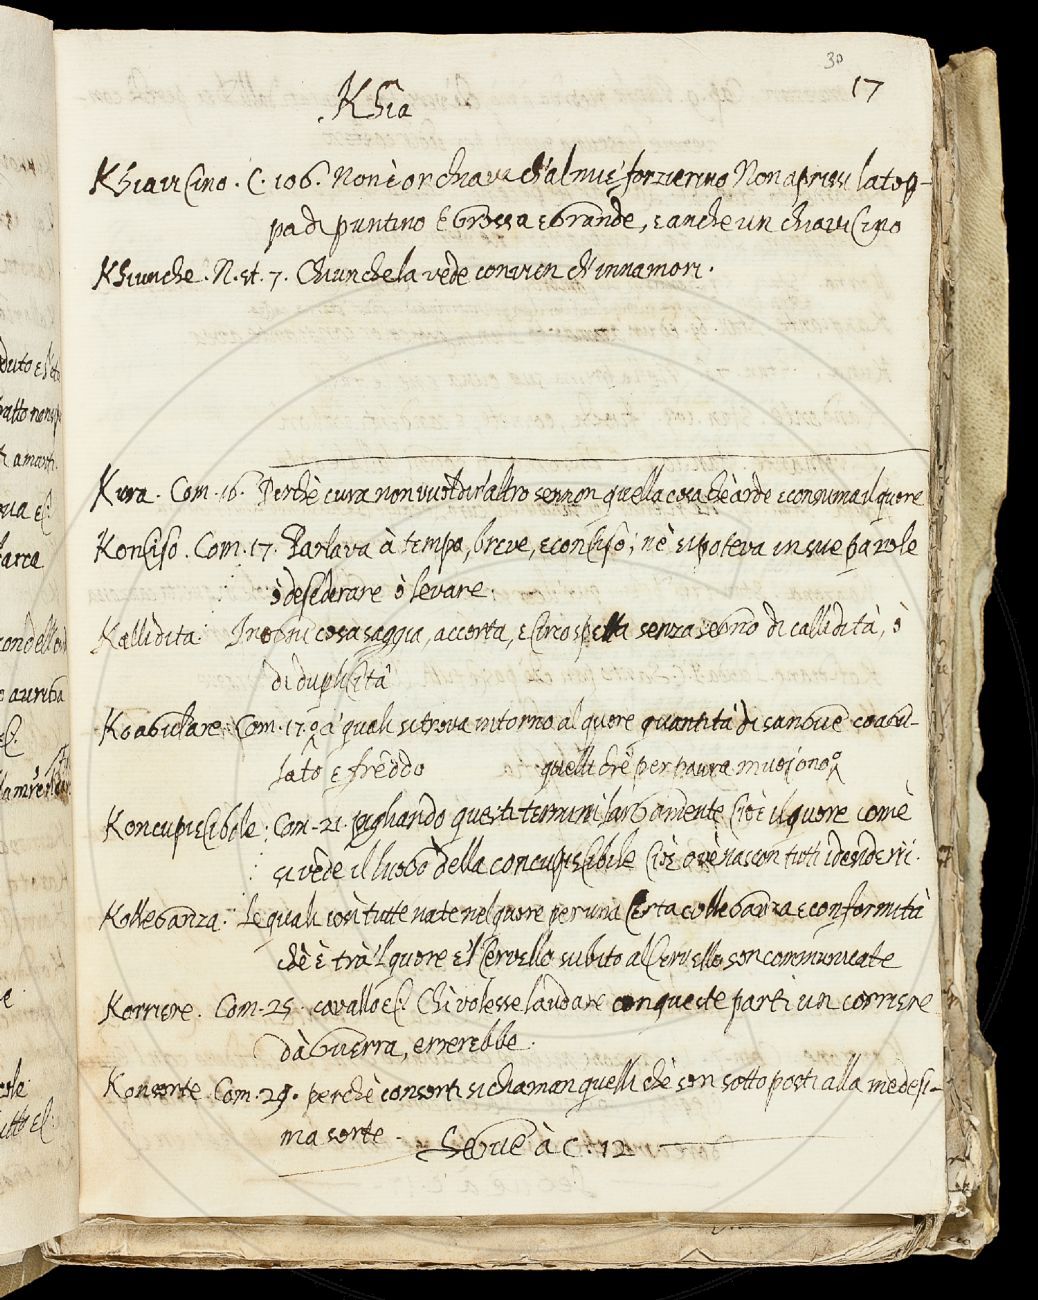 30
17
Khia
Khiavicino. C. 106. Non è or chiave ch'al mi
forzierino Non aprissi la top-
pa di puntino E grossa e grande, e anche un chiavicino
Khiunche. N. st. 7. Chiunche la vede convien ch'innamori.
Kura. Com. 16. Perchè cura non vuol dir altro se non quella cosa chè arde e consuma il quore
Konciso. Com. 17. Parlava à tempo, breve, e conciso; nè si poteva in sue parole
ò desiderare ò levare.
Kallidità. In ogni cosa saggia, accorta, e circospetta senza segno di callidità, ò
di duplicità
Koagulare. Com. 17. a' quali si trova intorno al quore quantità di sangue coagu-
lato e freddo quelli chè per paura muojono
Koncupiscibole. Com. 21. pigliando questi termini largamente cioè il quore comè
si vede il luogo della concupiscibile cioè ovè nascon tutti i desiderii.
Kolleganza. Le quali così tutte nate nel quore per una certa colleganza e conformità
chè è trà 'l quore e 'l cervello subito al cervello son communicate
Korriere. Com. 25. cavallo ec. Chi volesse laudare con queste parti un corriere
dà guerra, errerebbe.
Konsorte. Com. 29. perchè consorti si chiaman quelli chè son sottoposti alla medesi-
ma sorte.
Segue à c. 12